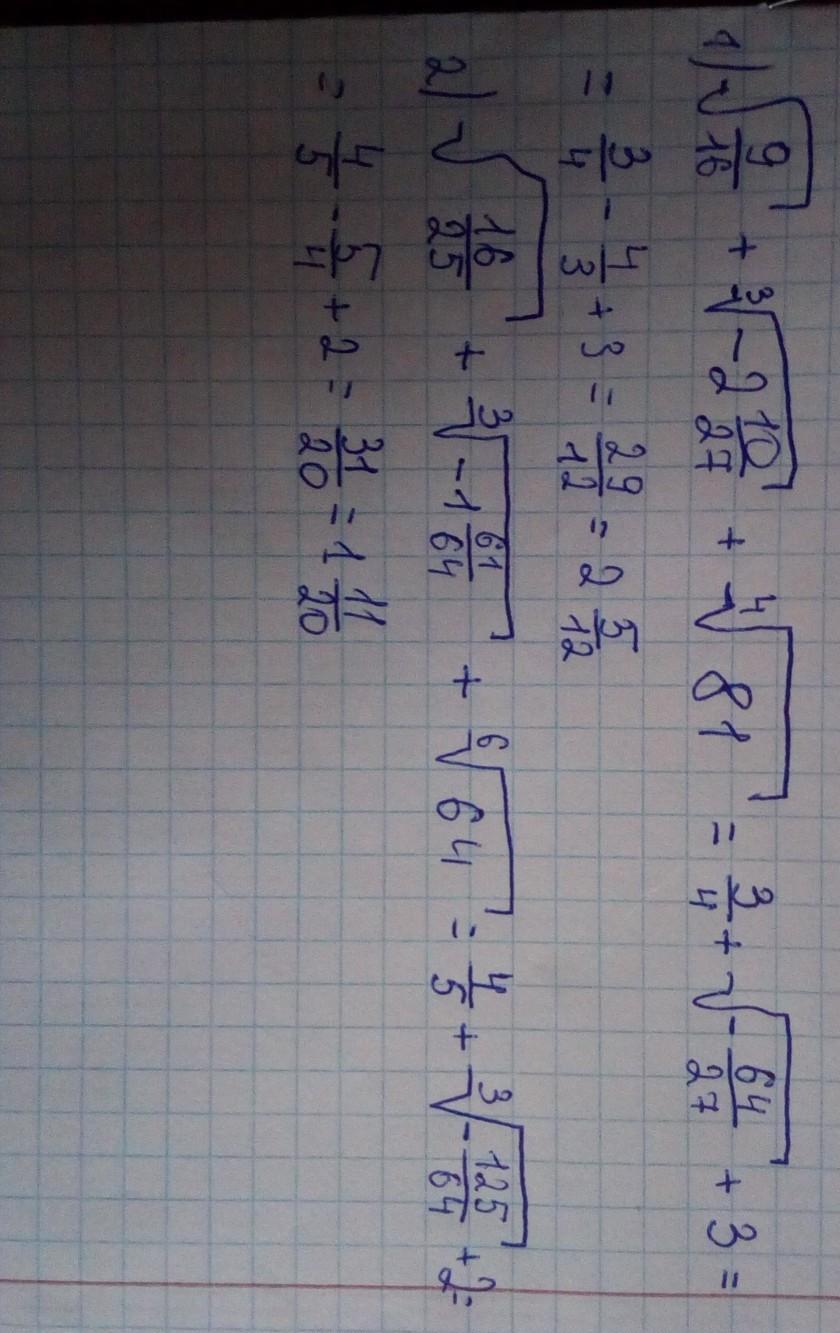 1) √(9/16) + ∛(-2 10/27) + ∜81 = 3/4 + √(-64/27) + 3 =
= 3/4 - 4/3 + 3 = 29/12 = 2 5/12
2) √(16/25) + ∛(-1 61/64) + ⁶√64 = 4/5 + ∛(-125/64) + 2=
= 4/5 - 5/4 + 2 = 31/20 = 1 11/20